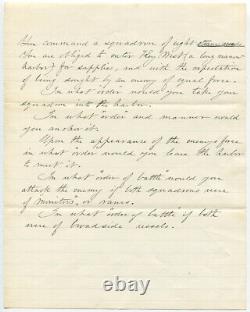 You command a squadron of eight
You are obliged to enter Key West (a long narrow
harbor) for supplies, and with the expectation
of being sought by an enemy of equal force.
In what order would you take your
squadron into the harbor.
In what order and manner would
you anchor it.
Upon the appearance of the enemys force
in what "order" would you leave the harbor
to meet it.
In what "order of battle" would you
attack the enemy if both squadrons were
of "monitors", or rams.
In what "order of battle" if both
were of broadside vessels.
thejumpingfrog.com